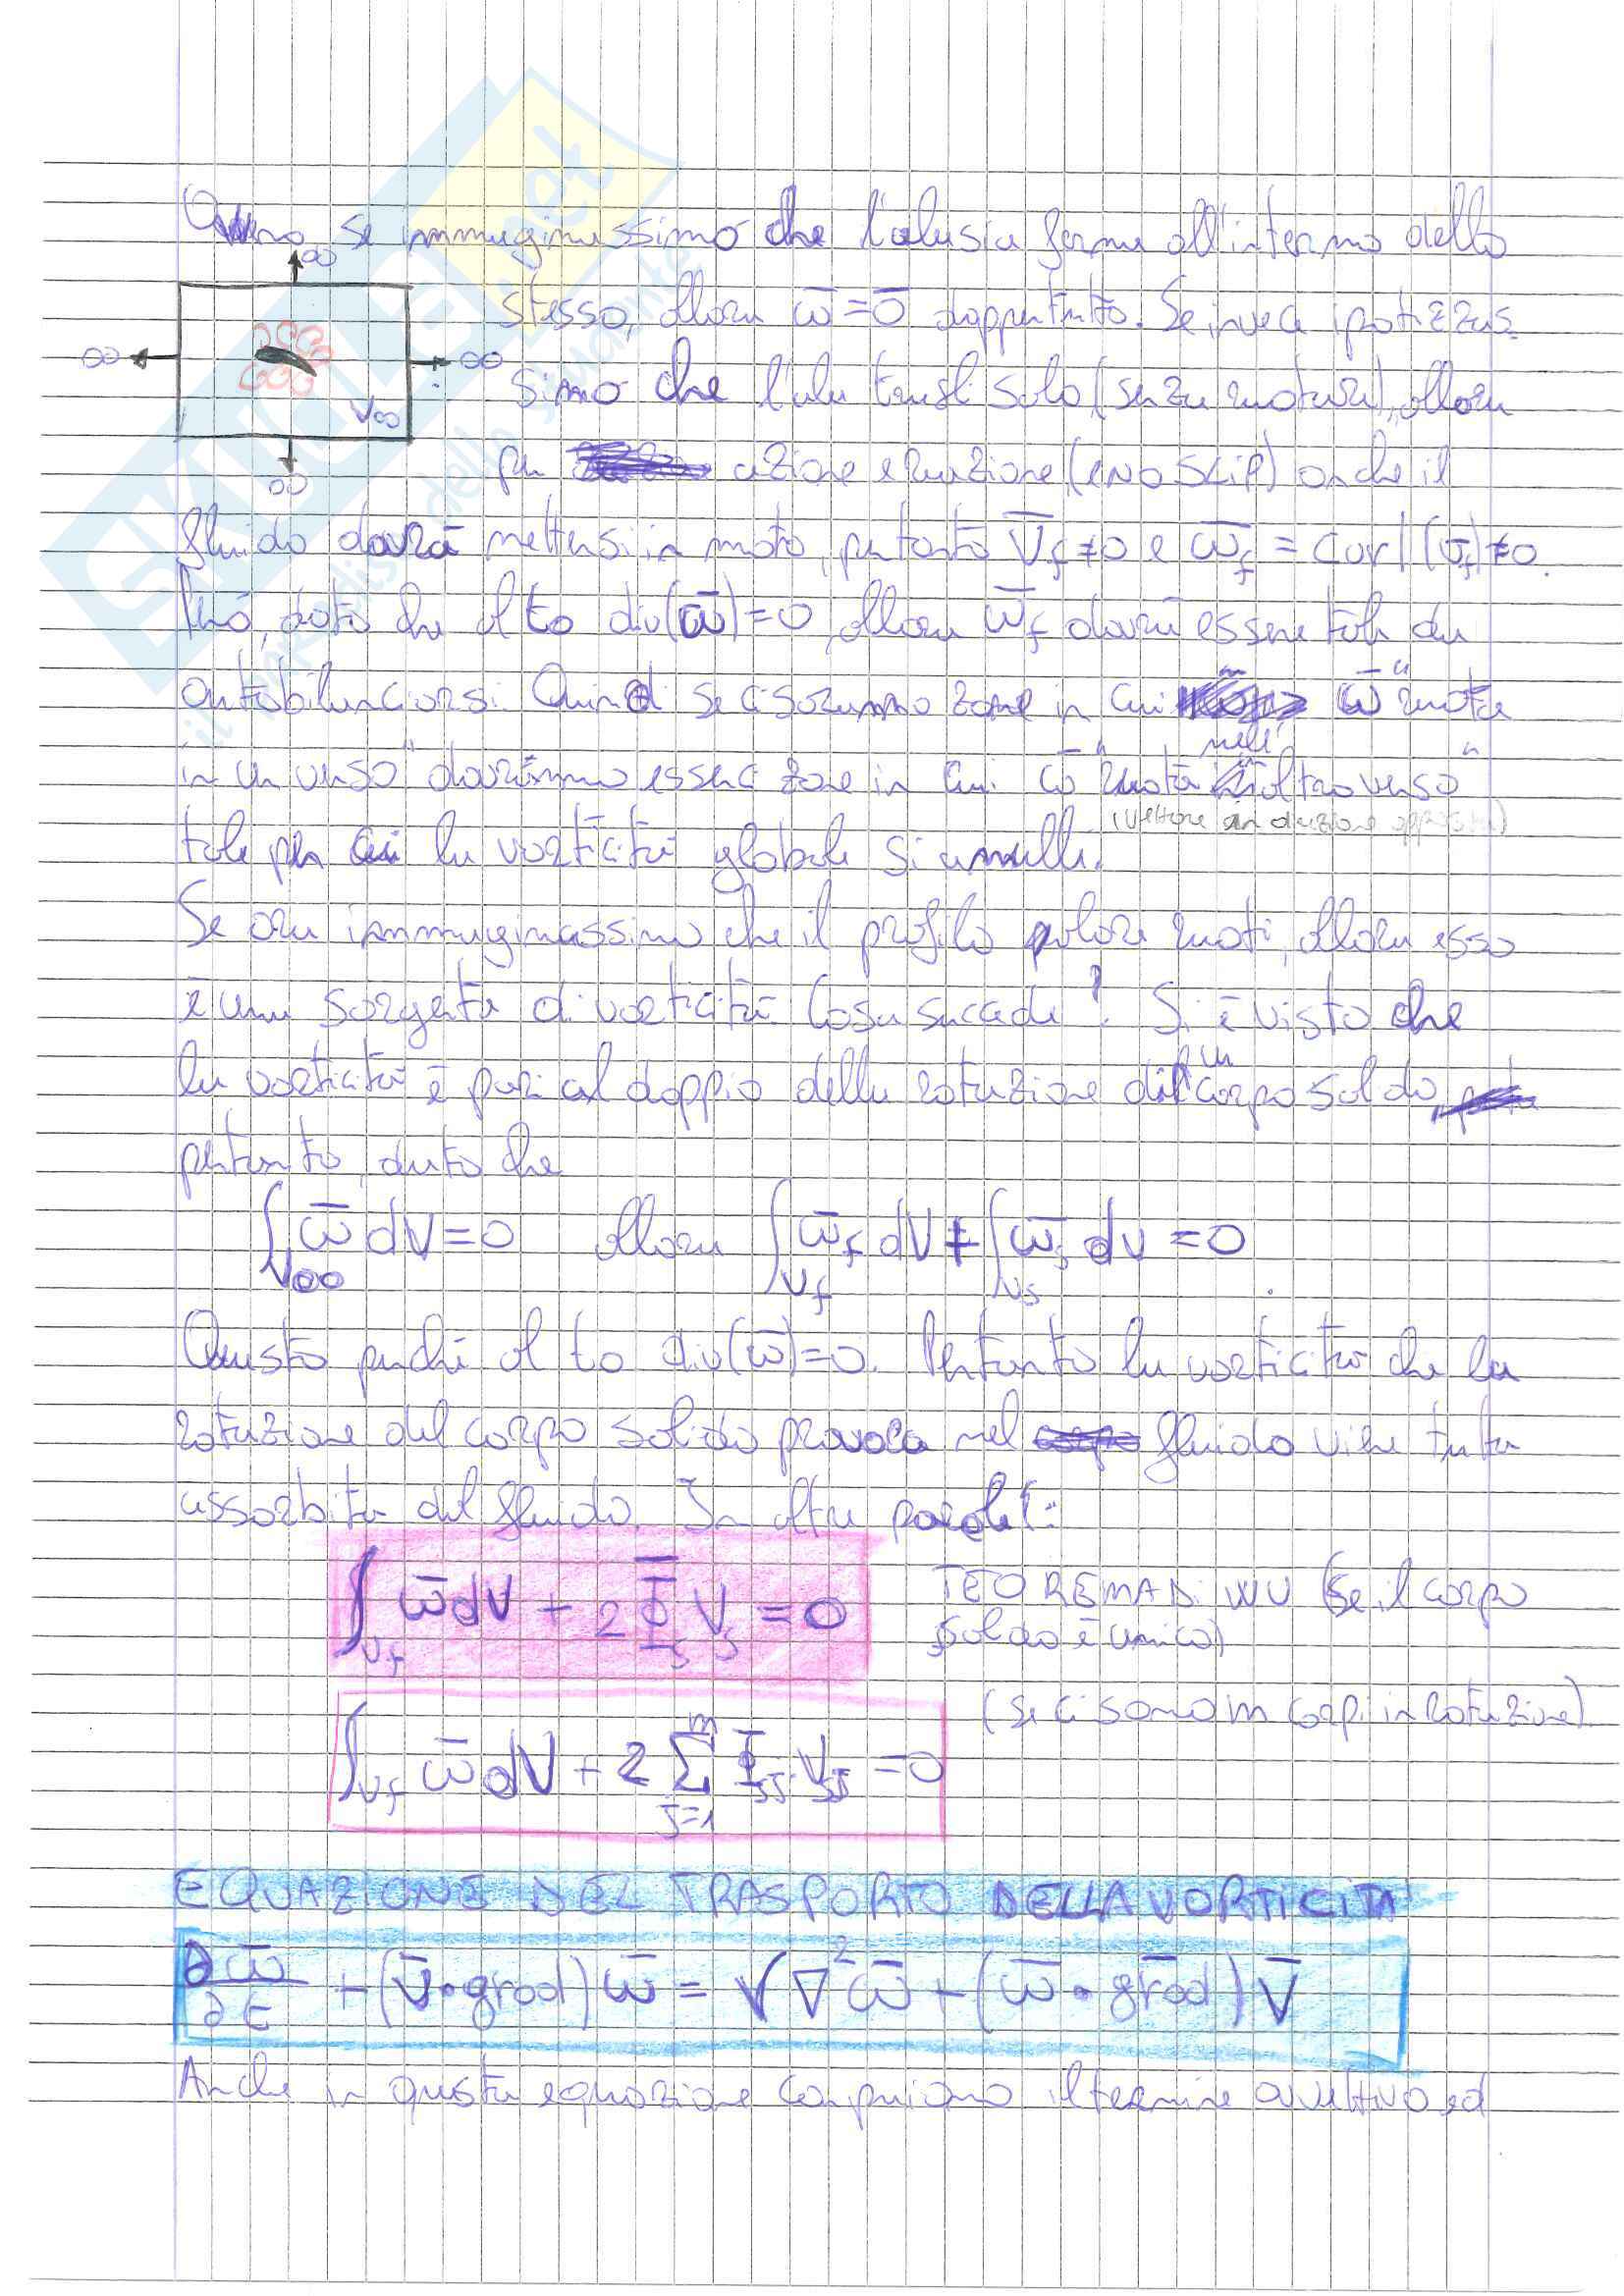 Ovvero, se immaginassimo che l'ala sia ferma all'interno dello
stesso, allora ω̄ = 0̄ dappertutto. Se invece ipotizzas-
simo che l'ala trasli solo (senza ruotare), allora
per azione e reazione (e NO SLIP) anche il
fluido dovrà mettersi in moto, pertanto V̄f ≠ 0 e ω̄f = curl(v̄f) ≠ 0.
Però, dato che al to div(ω̄) = 0, allora ω̄f dovrà essere tale da
autobilanciarsi. Quindi se ci saranno zone in cui "ω̄ ruota
in un verso" dovranno esserci zone in cui "ω̄ ruota nell'altro verso"
(vettore in direzione opposta)
tale per cui la vorticità globale si annulla.
Se ora immaginassimo che il profilo alare ruoti, allora esso
è una sorgente di vorticità. Cosa succede? Si è visto che
la vorticità è pari al doppio della rotazione di un corpo solido,
pertanto, dato che
∫V∞ ω̄ dV = 0 allora ∫Vf ω̄f dV + ∫Vs ω̄s dV = 0.
Questo perché al to div(ω̄) = 0. Pertanto la vorticità che la
rotazione del corpo solido provoca nel fluido viene tutta
assorbita dal fluido. In altre parole:
∫Vf ω̄ dV + 2 Φ̄s Vs = 0 TEOREMA DI WU (se il corpo
solido è unico)
(se ci sono m corpi in rotazione)
∫Vf ω̄ dV + 2 Σ(j=1, m) Φ̄sj Vsj = 0
EQUAZIONE DEL TRASPORTO DELLA VORTICITÀ
∂ω̄/∂t + (v̄ • grad) ω̄ = ν ∇² ω̄ + (ω̄ • grad) v̄
Anche in questa equazione compaiono il termine avvettivo ed
∞
∞
∞
∞
V∞
SKUOLA.net
il paradiso dello studente